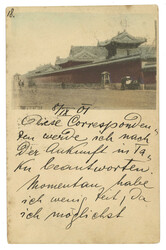 18.
8/IX 01
Diese Corresponden
den werde ich nach
Der Ankunft in
beantworten.
Momentan habe
ich wenig Zeit, da
ich möglichst